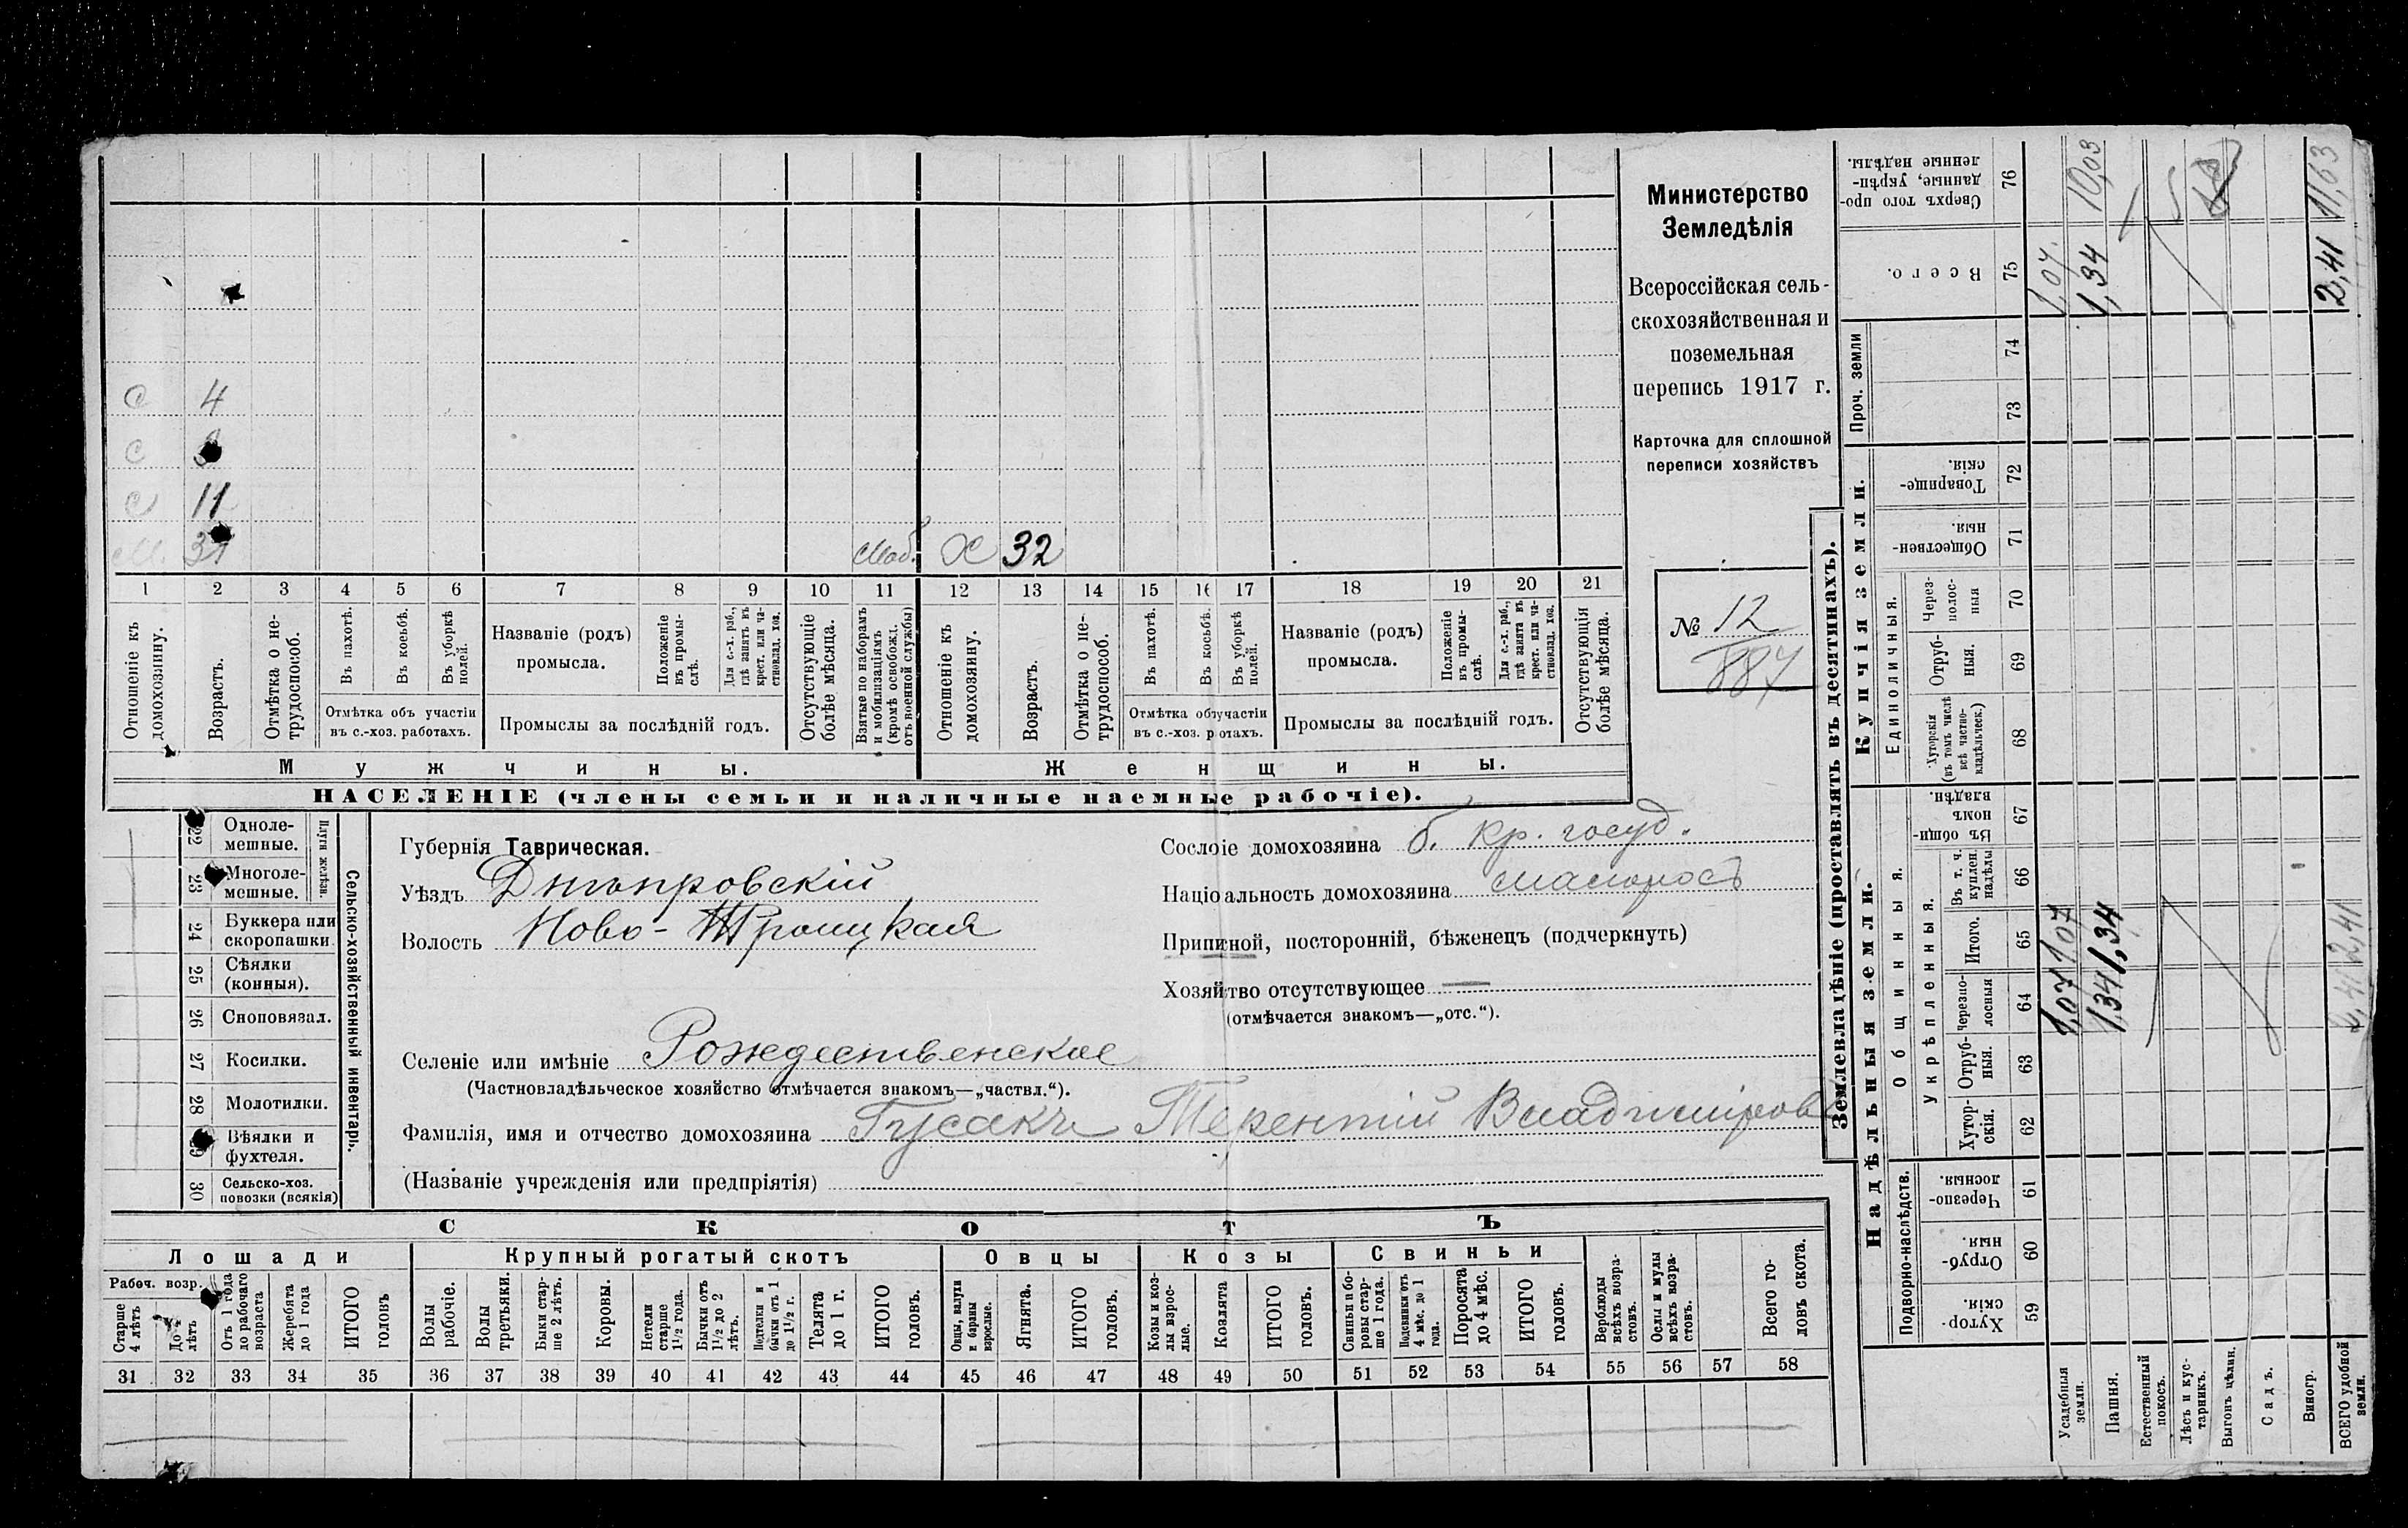 Министерство
Земледѣлія
Всероссійская сель-
скохозяйственная и
поземельная
перепись 1917 г.
Карточка для сплошной
переписи хозяйствъ
№ 12
887
с 4
с
с 11
м. 31 Моб. Х 32
1 2 3 4 5 6 7 8 9 10 11 12 13 14 15 16 17 18 19 20 21
Отношеніе къ домохозяину.
Возрастъ.
Отмѣтка о не-трудоспособ.
Въ пахотѣ.
Въ косьбѣ.
Въ уборкѣ полей.
Отмѣтка объ участіи
въ с.-хоз. работахъ.
Названіе (родъ)
промысла.
Положеніе въ промы-слѣ.
Для с.-х. раб., гдѣ занятъ въ крест. или ча-стновлад. хоз.
Промыслы за послѣдній годъ.
Отсутствующіе болѣе мѣсяца.
Взятые по наборамъ и мобилизаціямъ (кромѣ освобожд. отъ военной службы)
Отношеніе къ домохозяину.
Возрастъ.
Отмѣтка о не-трудоспособ.
Въ пахотѣ.
Въ косьбѣ.
Въ уборкѣ полей.
Отмѣтка об участіи
въ с.-хоз. р отахъ.
Названіе (родъ)
промысла.
Положеніе въ промы-слѣ.
Для с.-х. раб., гдѣ занята въ крест. или ча-стновлад. хоз.
Промыслы за послѣдній годъ.
Отсутствующія болѣе мѣсяца.
Мужчины.
Женщины.
НАСЕЛЕНІЕ (члены семьи и наличные наемные рабочіе).
Сельско-хозяйственный инвентарь.
Плуги желѣзн.
22 Одноле-мешные.
23 Многоле-мешные.
24 Буккера или скоропашки
25 Сѣялки (конныя).
26 Сноповязал.
27 Косилки.
28 Молотилки.
Вѣялки и фухтеля.
30 Сельско-хоз. повозки (всякія)
Губернія Таврическая.
Уѣздъ Днѣпровскій
Волость Ново-Троицкая
Сословіе домохозяина б. кр. госуд.
Націо альность домохозяина малоросъ
Приписной, посторонній, бѣженецъ (подчеркнуть)
Хозяйство отсутствующее —
(отмѣчается знакомъ—„отс.“).
Селеніе или имѣніе Рождественское
(Частновладѣльческое хозяйство отмѣчается знакомъ—„частвл.“).
Фамилія, имя и отчество домохозяина Гусакъ Терентій Владиміров
(Названіе учрежденія или предпріятія)
СКОТЪ
Лошади
Крупный рогатый скотъ
Овцы
Козы
Свиньи
Рабоч. возр.
Старше 4 лѣтъ
До 4 лѣтъ
Отъ 1 года до рабочаго возраста
Жеребята до 1 года
ИТОГО головъ
Волы рабочіе.
Волы третьяки.
Быки стар-ше 2 лѣтъ.
Коровы.
Нетели старше 1½ года.
Бычки отъ 1½ до 2 лѣтъ.
Подтелки и бычки отъ 1 до 1½ г.
Телята до 1 г.
ИТОГО головъ.
Овцы, валухи и бараны взрослые.
Ягнята.
ИТОГО головъ.
Козы и коз-лы взрос-лые.
Козлята
ИТОГО головъ.
Свиньи и бо-ровы стар-ше 1 года.
Подсвинки отъ 4 мѣс. до 1 года.
Поросята до 4 мѣс.
ИТОГО головъ.
Верблюды всѣхъ возра-стовъ.
Ослы и мулы всѣхъ возра-стовъ.
Всего го-ловъ скота.
31 32 33 34 35 36 37 38 39 40 41 42 43 44 45 46 47 48 49 50 51 52 53 54 55 56 57 58
Землевладѣніе (проставлять въ десятинахъ).
Надѣльныя земли.
Купчія земли.
Проч. земли
Подворно-наслѣдств.
Общинныя.
Укрѣпленныя.
Единоличныя.
Хутор-скія. 59
Отруб-ныя. 60
Черезпо-лосныя. 61
Хутор-скія. 62
Отруб-ныя. 63
Черезпо-лосныя 64
Итого. 65
Въ т. ч. куплен. надѣлы 66
Въ общи-номъ владѣн. 67
Хуторскія (въ томъ числѣ всѣ частно-владѣльческ.) 68
Отруб-ныя. 69
Черезполос-ныя 70
Обществен-ныя. 71
Товарище-скія. 72
73
74
Всего. 75
Сверхъ того про-данные, укрѣп-ленные надѣлы. 76
Усадебныя земли. 1,07 1,07 1,07
Пашня. 1,34 1,34 1,34 10,03
Естественный покосъ.
Лѣсъ и кус-тарникъ.
Выгонъ цѣлин.
Садъ.
Виногр.
ВСЕГО удобной земли. 2,41 2,41 2,41 11,63